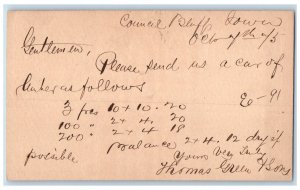 Council Bluff, Iowa
Oct 7th
Gentlemen,
Please send us a car of
as follows
3 pcs 10 x 10. 20
100 " 2 x 4. 20
200 " 2 x 4 18
balance 2 x 4. 12 dry if
possible
Yours Very Truly
Thomas Green & Sons